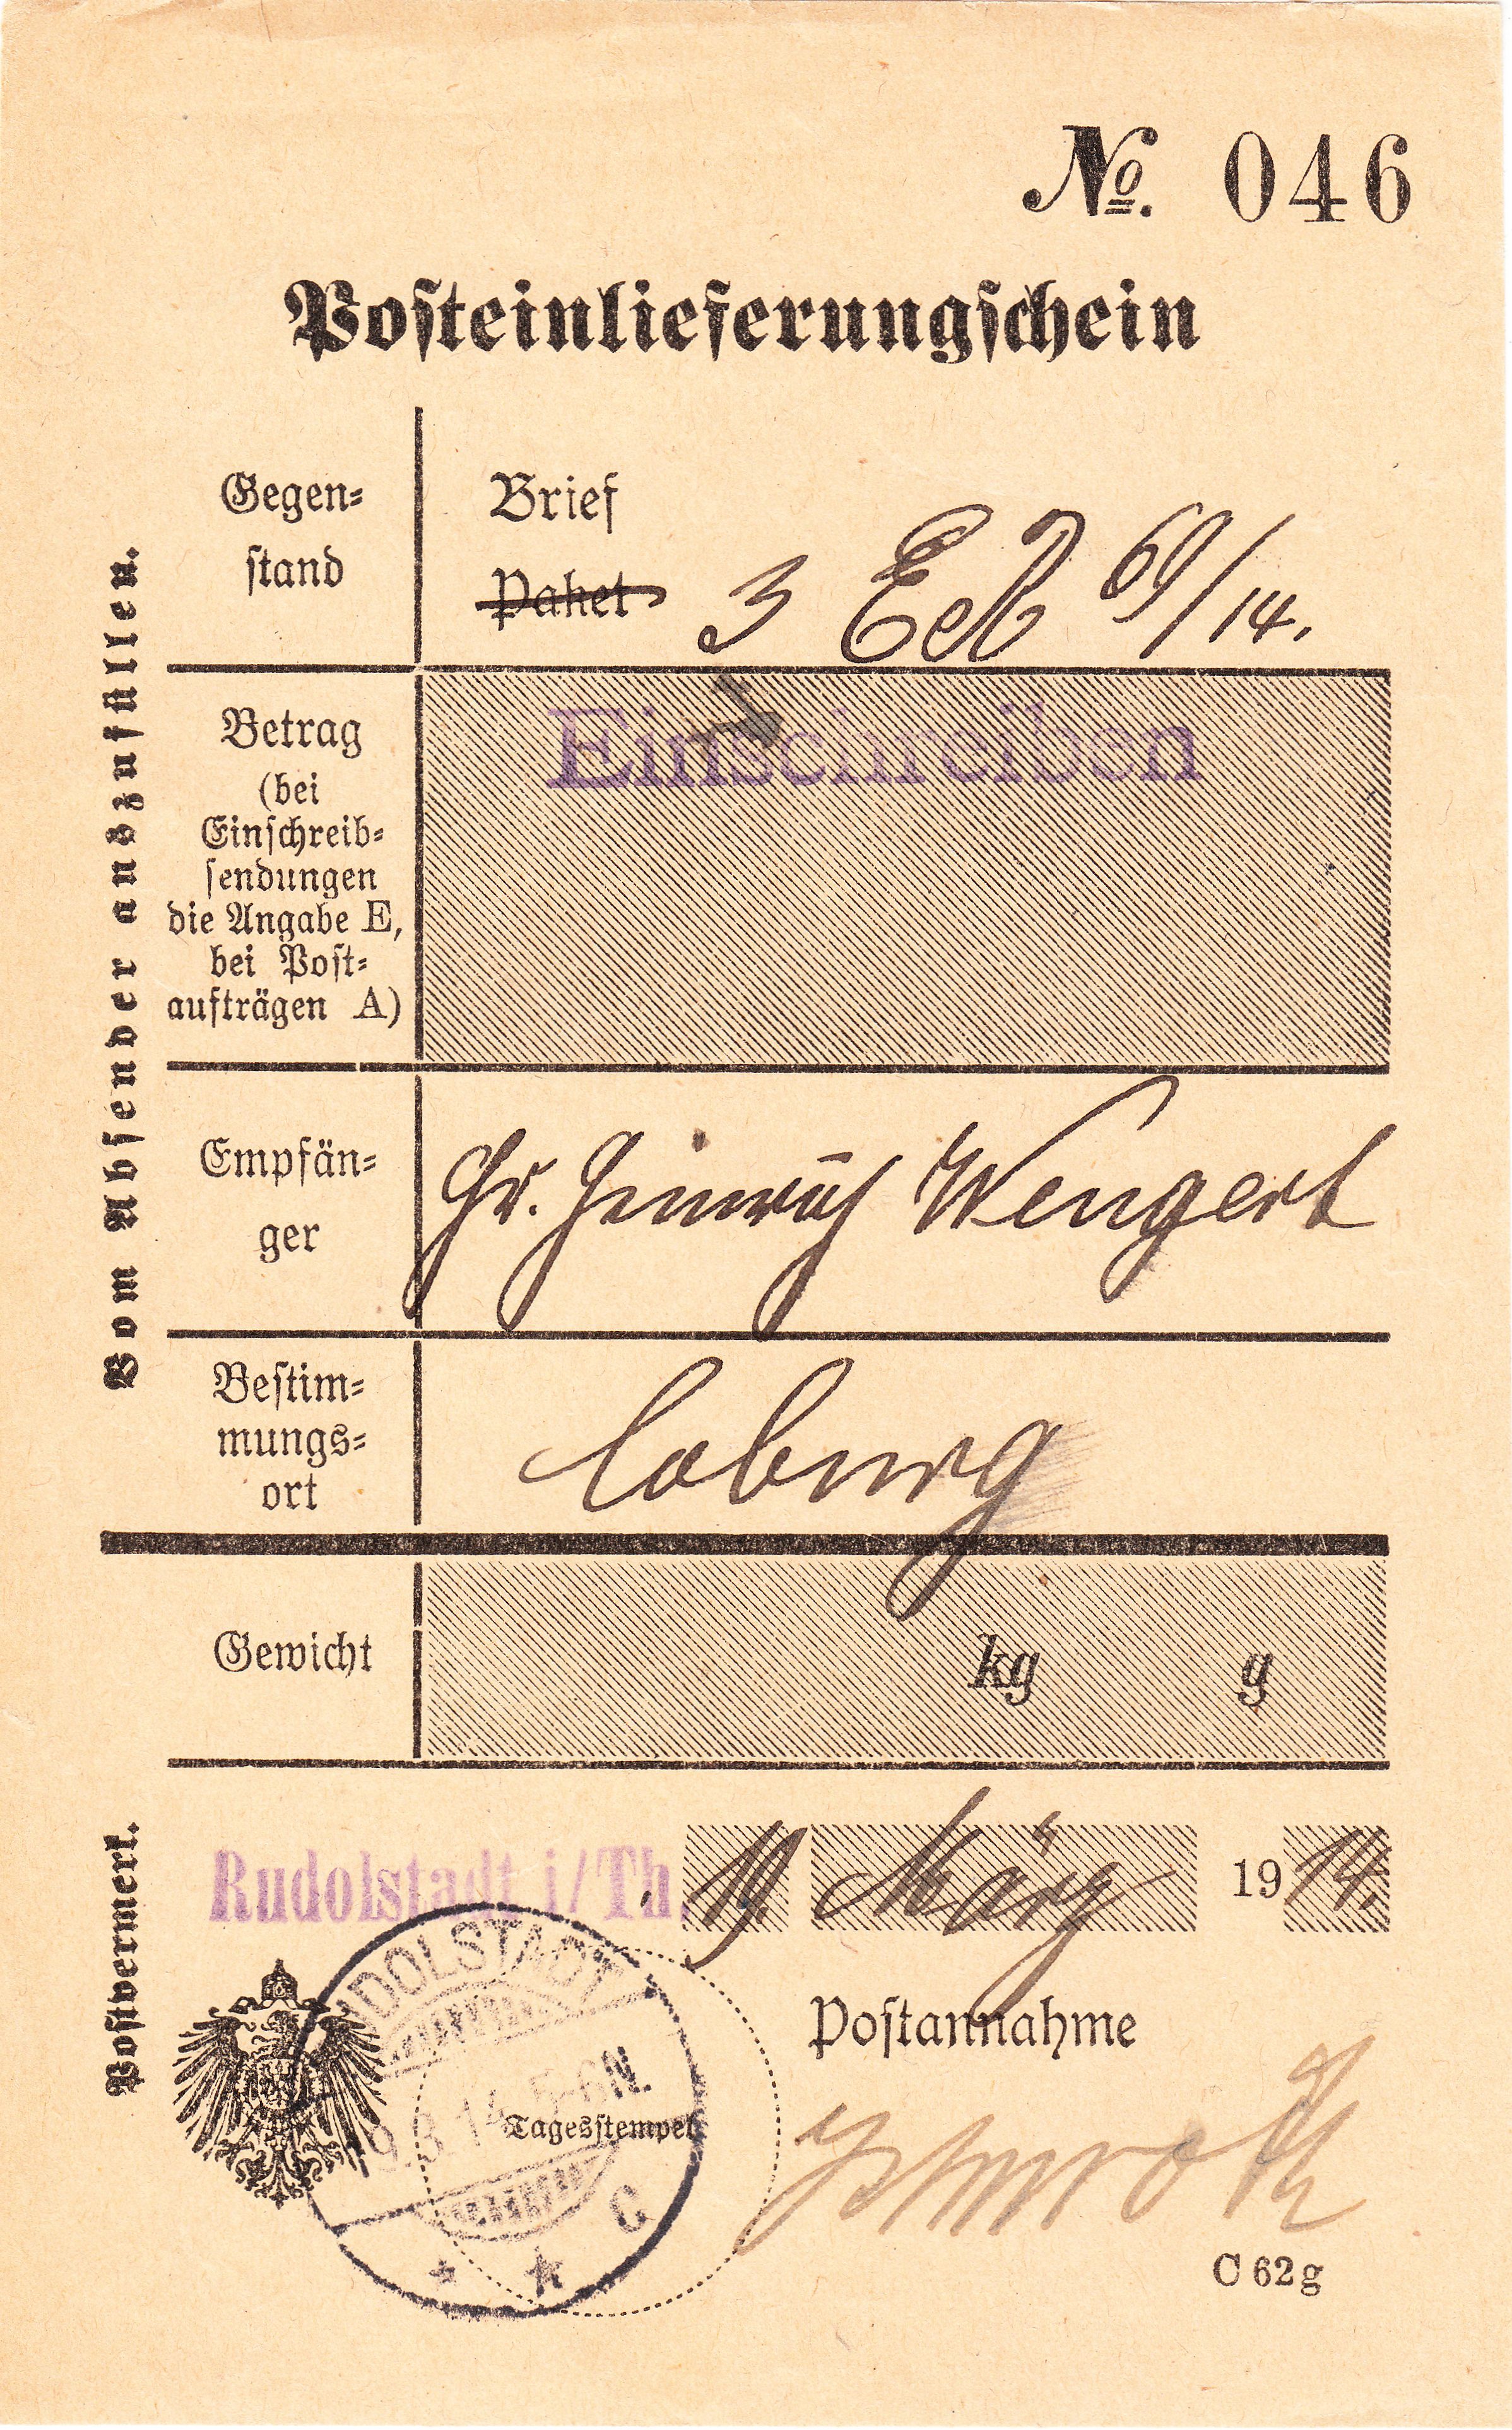 №. 046
Posteinlieferungschein
Vom Absender auszufüllen.
Gegen-
stand
Brief
Paket
3 E 69/14.
Betrag
(bei
Einschreib-
sendungen
die Angabe E,
bei Post-
aufträgen A)
Einschreiben
Empfän-
ger
Hr. Heinrich Wengert
Bestim-
mungs-
ort
Coburg
Gewicht
kg g
Postvermerk.
Rudolstadt i/Th. 19. März 1914.
RUDOLSTADT
19.3.14. 5-6N.
C
* *
Tagesstempel
Postannahme
C 62g